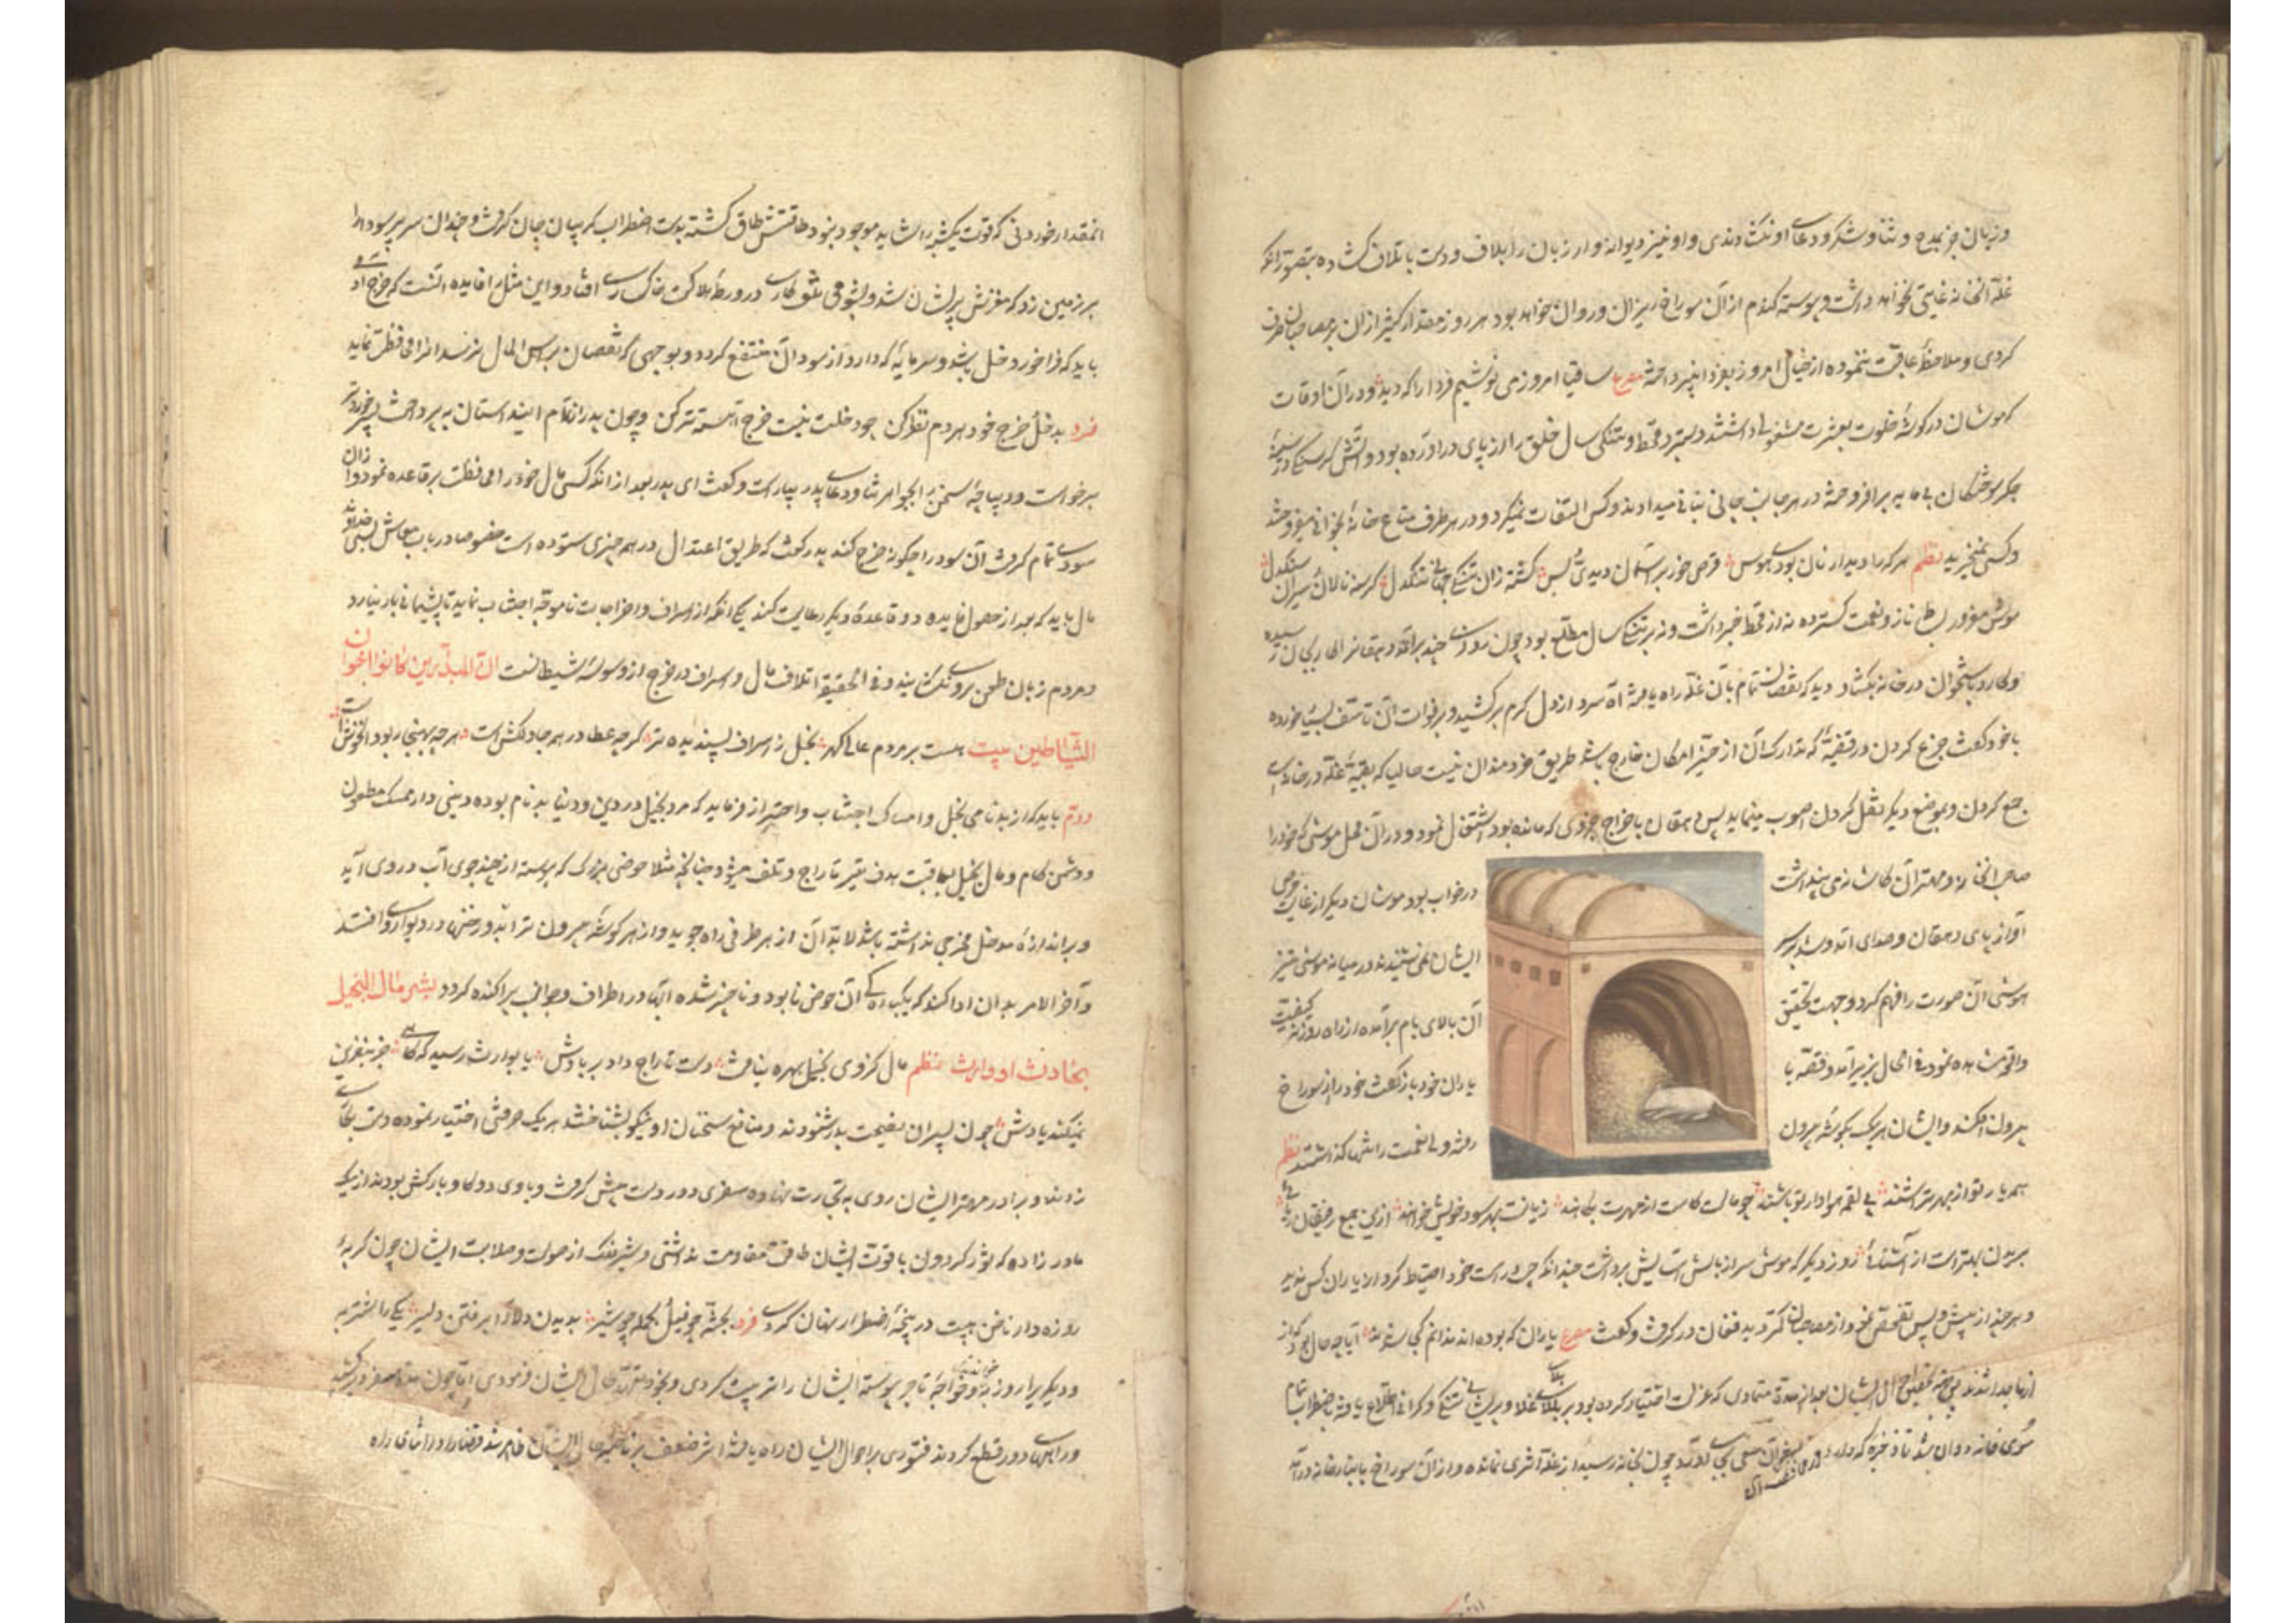 و زبان جز بمدح و ثنا و شکر و دعای او نگشادندی و او نیز دیوانه وار زبان را بلاف و دست باتلاف کشاده بتصور آنکه
غلهٔ آنخانه غایتی نخواهد داشت و پیوسته کندم از آن سوراخ ریزان و روان خواهد بود هر روز مقدار کثیر از آن بر مصاحبان صرف
کردی و ملاحظهٔ عاقبت ننموده از خیال امروز بفردا نپرداختی مصرع ساقیا امروز می نوشیم فردا را که دید و در آن اوقات
که موشان در کوشهٔ خلوت بعشرت مشغولی داشتند دستبرد قحط و تنکی سال خلق را از پای در آورده بود و آتش کرسنکی در سینهٔ
جکر سوختکان بی مایه برافروخته در هر جانب جانی بنانی میدادند و کس التفات نمیکرد و در هر طرف متاع خانهٔ بخوانی میفروختند
و کسی نمیخرید نظم هر که را دیدار نان بودی هوس قرص خور بر آسمان دیدی و بس کشته زان تنکی جهانی تنکدل کرسنه نالان و سیران سنکدل
موش مغرور بساط ناز و نعمت کسترده نه از قحط خبر داشت و نه بر تنکی سال مطلع بود چون روزی چند برآمد دهقانرا
و کارد باستخوان در خانه بکشاد دید که نقصان تمام بآن غله راه یافته آه سرد از دل کرم برکشید و بر فوات آن تاسف بسیار خورده
با خود کفت جزع کردن در قضیهٔ که تدارک آن از حیز امکان خارج باشد طریق خردمندان نیست حالیا که بقیهٔ غله در خانه است
جمع کردن و بموضع دیکر نقل کردن اصوب مینماید پس دهقان باخراج جزوی که مانده بود اشتغال نمود و در آن محل موشی که خود را
صاحب آنخانه و مهتر آن کاشانه می پنداشت
در خواب بود و موشان دیکر از غایت حرص
آواز پای دهقان و صدای آمد و شد بر سر
ایشان نمی شنیدند در میانه موشی تیز
هوشی آن صورت را فهم کرد و جهت تحقیق
آن بالای بام برآمده از راه روزنه کیفیت
واقع مشاهده نمود فی الحال بزیر آمد و قصه با
یاران خود باز کفت و خود را از سوراخ
بیرون افکند و ایشان هر یک بکوشهٔ بیرون
رفته ولی نعمت را تنها کذاشتند نظم
همه یار تو از بهر تراشند پی لقمه هوادار تو باشند چو مالت کاست از مهرت بکاهند زیانت بهر سود خویش خواهند ازین جمع رفیقان ریائی
بریدن بهترست از آشنائی روز دیکر که موش سر از بالش آسایش برداشت چندانکه چپ و راست خود احتیاط کرد از یاران کس ندید
و هر چند از پیش و پس تفحص نمود از مصاحبان کمتر دید فغان در کرفت و کفت مصرع یاران که بوده اند ندانم کجا شدند آیا چه حال بود که از
از ما جدا شدند پس جهت تحقیق حال ایشان بعد از مدت متمادی که عزلت اختیار کرده بود بر بلای غلا و بلای تنکی و کرانی اطلاع یافته باضطراب تمام
سوی خانه دوان شد تا ذخیره که دارد در محافظت آن سعی بجای آورد چون بخانه رسید از غله اثری نمانده و از آن سوراخ بانبارخانه درآمد
آنمقدار خوردنی که قوت یکشبه را شاید موجود نبود طاقتش طاق کشته بدست اضطراب کریبان جان کرفت و چندان سر پر سودا را
بر زمین زد که مغزش پریشان شد و بشومی تلف کاری در ورطهٔ هلاکت خاکساری افتاد و این مثل را فایده آنست که خرج آدمی
باید که فراخور دخل باشد و سرمایهٔ که دارد از سود آن منتفع کردد و بوجهی که نقصان براس المال نرسد آنرا محافظت نماید
فرد بدخل و خرج خود هر دم نظر کن چو دخلت نیست خرج آهسته تر کن و چون پدر از اتمام این داستان بپرداخت پسر خوردتر
برخواست و دیباچهٔ سخن را بجواهر ثنا و دعای پدر بیاراست و کفت ای پدر بعد از آنکه کسی مال خود را محافظت بر قاعده نمود و از آن
سودی تمام کرفت آن سود را چکونه خرج کند پدر کفت که طریق اعتدال در همه چیزی ستوده است خصوصا در باب معاش پس خداوند
مال باید که بعد از حصول فایده دو قاعدهٔ دیکر رعایت کند یکی آنکه از اسراف و اخراجات ناموجه اجتناب نماید تا پشیمانی بار نیارد
و مردم زبان طعن بروی نکشایند و فی الحقیقه اتلاف مال و اسراف در خرج از وسوسهٔ شیطانست ان المبذرین کانوا اخوان
الشیاطین بیت هست بر مردم عالی کهر بخل ز اسراف پسندیده تر کرچه عطا در همه جا دلکش است هر چه بهنجار بود آن خوش است
دوم باید که از بدنامی بخل و امساک اجتناب و احتراز فرماید که مرد بخیل در دین و دنیا بدنام بوده و دنیادار ممسک مطعون
و دشمن کام و مال بخیل بعاقبت هدف تیر تاراج و تلف میشود چنانچه مثلا حوضی بزرک که پیوسته از چند جوی آب در وی آید
و براندازهٔ مدخل مخرجی نداشته باشد لابد آن از هر طرفی راه جوید و از هر کوشهٔ بیرون تراود و رخنها در دیوار وی افتد
و آخر الامر بدان ادا کند که یکبارکی آن حوض نابود و ناچیز شده آبها در اطراف و جوانب پراکنده کردد بشر مال البخیل
بحادث او وارث نظم مال کزوی بخیل بهره نیافت دست تاراج داد بر بادش یا بوارث رسید که کاهی جز بنفرین
نمیکند یادش چون پسران نصیحت پدر شنودند و منافع سخنان او نیکو بشناختند هر یک حرفتی اختیار نموده دست بکاری
زدند و برادر مهتر ایشان روی بتجارت نهاده سفری دور دست پیش کرفت و با وی دو کاو بارکش بودند از یک
مادر زاده که ثور کردون با قوت ایشان طاقت مقاومت نداشتی و شیر فلک از صولت و صلابت ایشان چون کربهٔ
روزه دار ناخن هیبت در پنجهٔ اضطرار نهان کردی فرد بجثه چو فیل و بحمله چو شیر بدیدن دلاور برفتن دلیر یکی را شتربه
و دیکریرا روزبه خواندندی و خواجهٔ تاجر پیوسته ایشان را تربیت کردی و بخود متعهد حال ایشان فرمودی اما چون مدت سفر دور کشید
و راههای دور قطع کردند فتوری باحوال ایشان راه یافته اثر ضعف بر ناصیهٔ حال ایشان ظاهر شد قضا را در اثنای راه